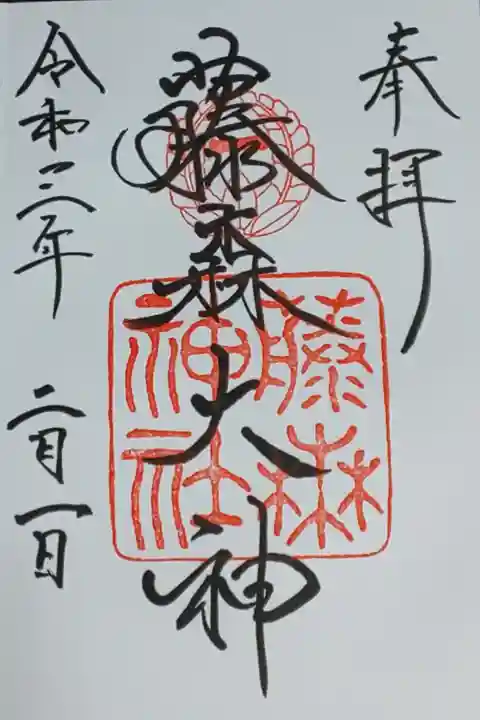 奉拝
藤森大神
藤森神社
令和三年 二月一日